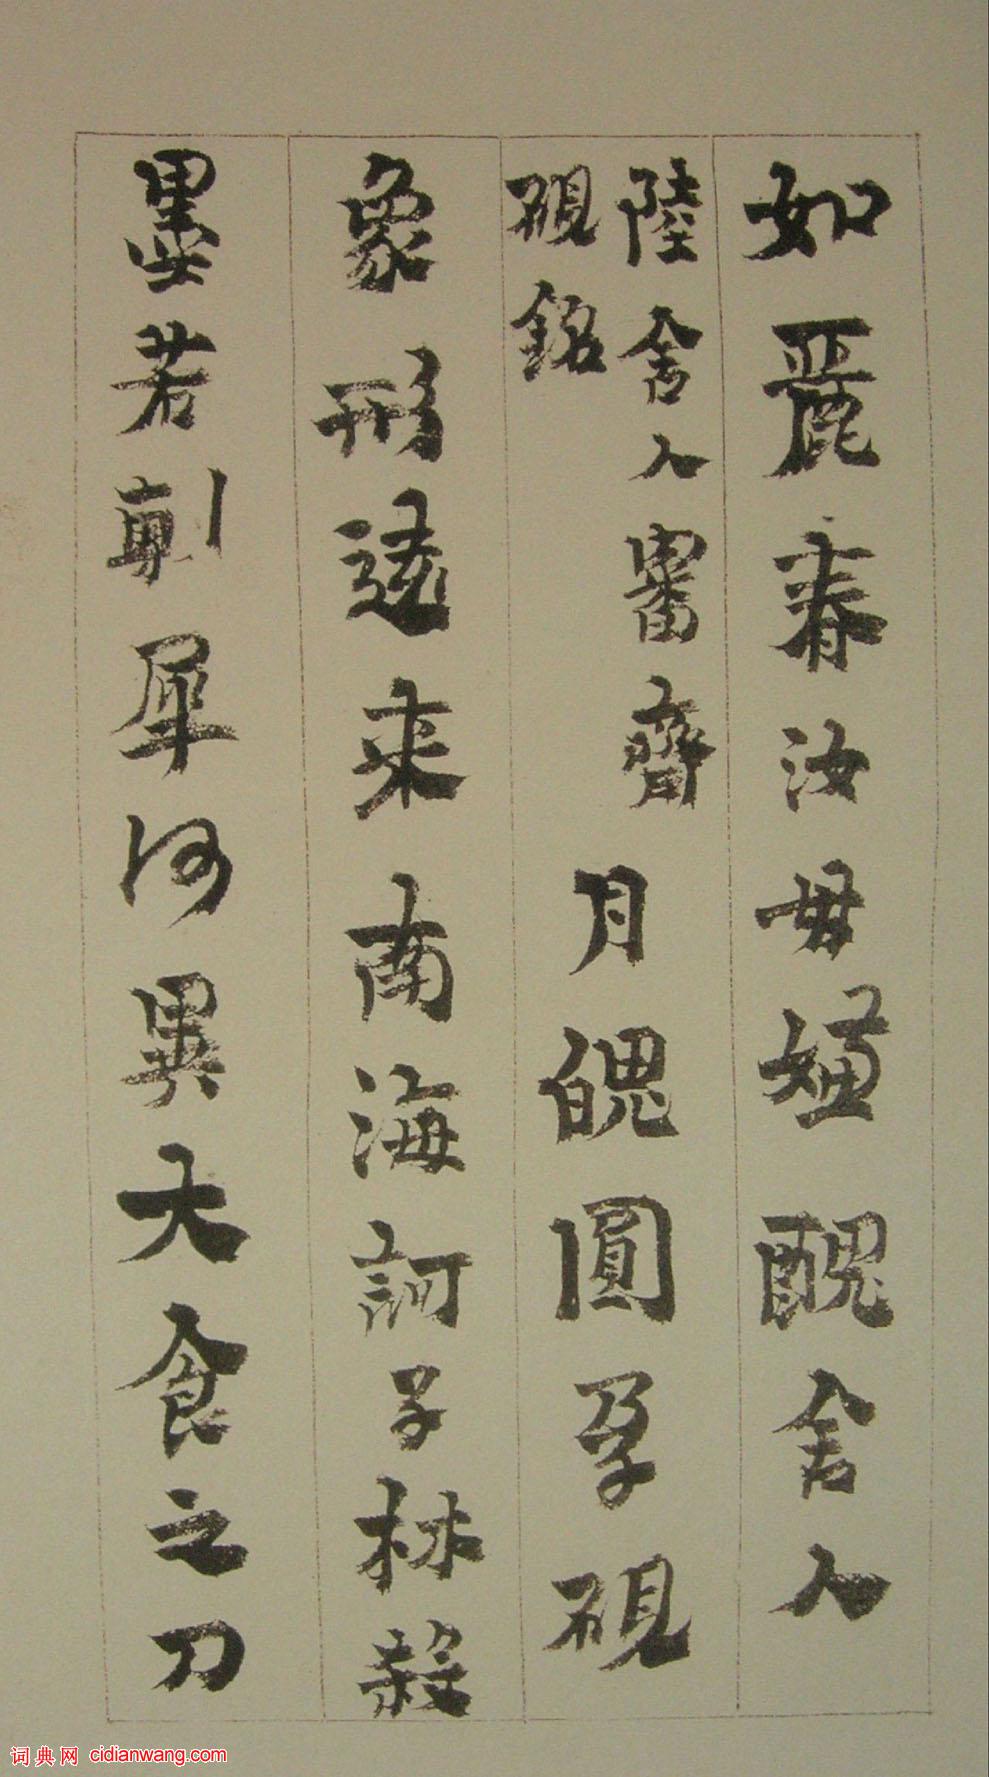 如麗春汝毋嫌醜舍人
陸舍人審齋
硯銘
月魄圓孕硯
象形遠來南海訶子林殺
墨若剸犀何異大食之刀
词典网 cidianwang.com